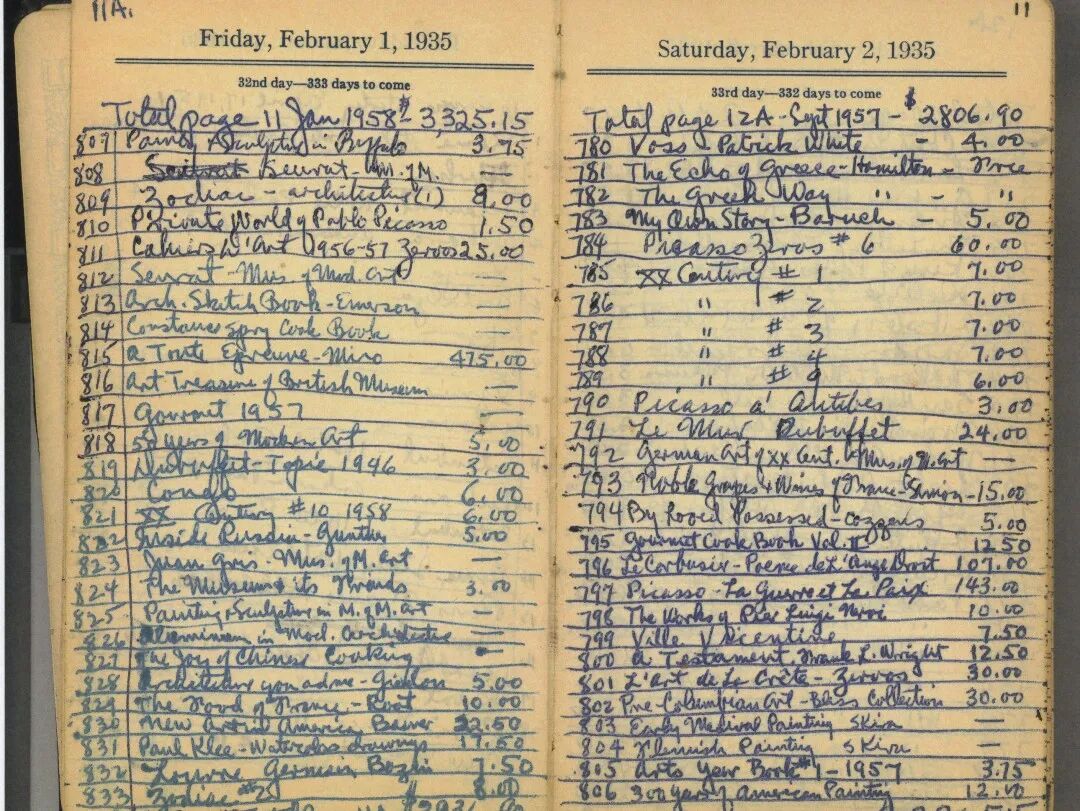 11A.
Friday, February 1, 1935
32nd day—333 days to come
Total page 11 Jan 1958 - $3,325.15
807 Paintg & Sculpture in Buffalo 3.75
808 Seurat - M. of M. —
809 Zodiac - architecture (1) 8.00
810 Private World of Pablo Picasso 1.50
811 Cahiers D'Art 1956-57 Zervos 25.00
812 Seurat - Mus. of Mod. Art —
813 Arch. Sketch Book - Emerson —
814 Constance Spry Cook Book —
815 A Toute Epreuve - Miro 475.00
816 Art Treasure of British Museum —
817 Gourmet 1957 —
818 50 years of Modern Art 5.00
819 Dubuffet - Tapie 1946 3.00
820 Congo 6.00
821 XX Century #10 1958 6.00
822 Inside Russia - Gunther 5.00
823 Juan Gris - Mus. of M. Art —
824 The Museum & its Friends 3.00
825 Painting & Sculpture in M. of M. Art —
826 Aluminum in Mod. Architecture —
827 The Joy of Chinese Cooking
828 Architecture you and me - Giedion 5.00
829 The Food of France - Root 10.00
830 New Art in America Bauer 22.50
831 Paul Klee - Watercolors drawings 17.50
832 Louvre Germain Bazin 7.50
833 Zodiac #2 8.00
11
Saturday, February 2, 1935
33rd day—332 days to come
Total page 12A - Sept 1957 - $2806.90
780 Voss - Patrick White - 4.00
781 The Echo of Greece - Hamilton - Free
782 The Greek Way " - "
783 My Own Story - Baruch - 5.00
784 Picasso Zervos #6 60.00
785 XX Century #1 7.00
786 " #2 7.00
787 " #3 7.00
788 " #4 7.00
789 " #9 6.00
790 Picasso a' Antibes 3.00
791 Le Mur Dubuffet 24.00
792 German Art of XX Cent. Mus. of M. Art —
793 Noble Grapes & Wines of France - Simon - 15.00
794 By Loved Possessed - Cozzens 5.00
795 Gourmet Cook Book Vol. II 12.50
796 Le Corbusier - Poeme de L'Ange Droit 107.00
797 Picasso - La Guerre et La Paix 143.00
798 The Works of Pier Luigi Nervi 10.00
799 Ville Vicentine 7.50
800 A Testament, Frank L. Wright 12.50
801 L'art de La Crête - Zervos 30.00
802 Pre Columbian Art - Bliss Collection 30.00
803 Early Medieval Painting Skira —
804 Flemish Painting Skira —
805 Arts Year Book #1 - 1957 3.75
806 300 Years of American Painting 12.00